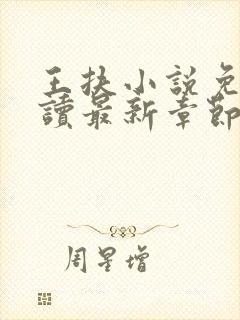 王扶小說免
讀最新章節
周星增